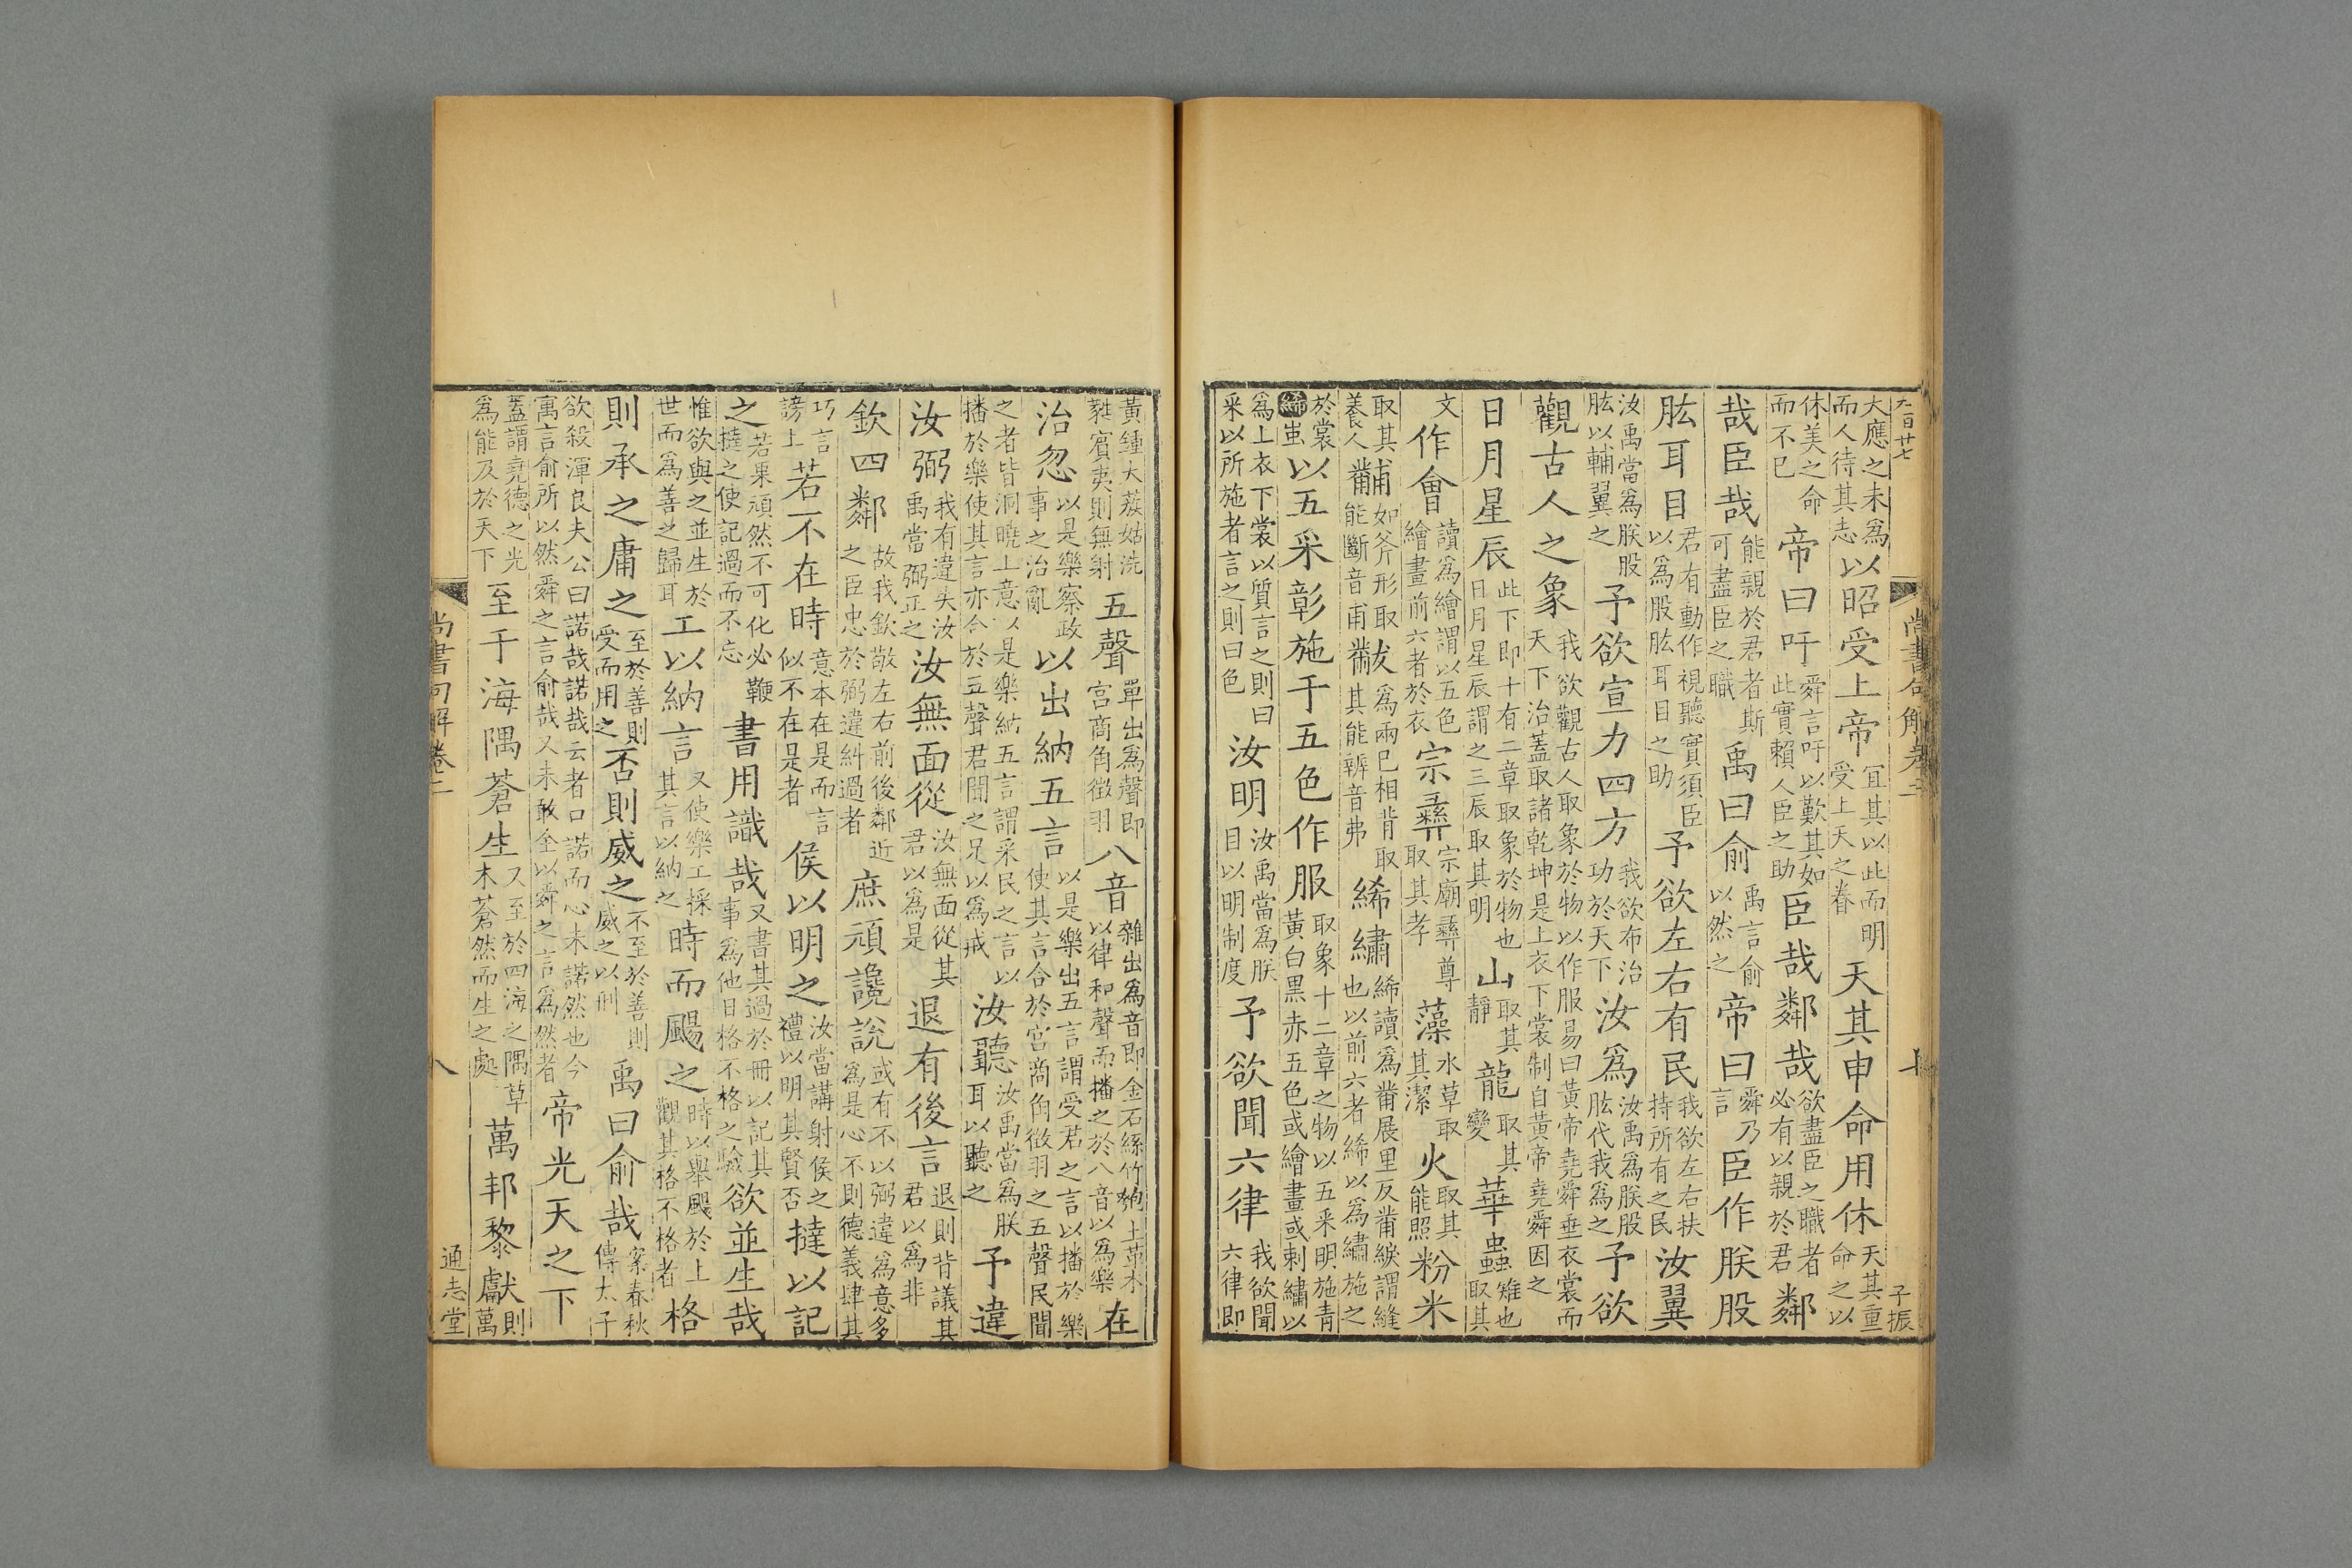 大應之未爲而人待其志以昭受上帝宜其以此而明受上天之眷天其申命用休天其重命之以
休美之命而不已帝曰吁舜言吁以歎其如此實賴人臣之助臣哉鄰哉欲盡臣之職者必有以親於君鄰
哉臣哉能親於君者斯可盡臣之職禹曰俞禹言俞以然之帝曰舜乃言臣作朕股
肱耳目君有動作視聽實須臣以爲股肱耳目之助予欲左右有民我欲左右扶持所有之民汝翼
汝禹當爲朕股肱以輔翼之予欲宣力四方我欲布治功於天下汝爲汝禹爲朕股肱代我爲之予欲
觀古人之象我欲觀古人取象於物以作服易曰黃帝堯舜垂衣裳而天下治蓋取諸乾坤是上衣下裳制自黃帝堯舜因之
日月星辰此下即十有二章取象於物也日月星辰謂之三辰取其明山取其靜龍取其變華蟲雉也取其
文作會讀爲繪謂以五色繪畫前六者於衣宗彝宗廟彝尊取其孝藻水草取其潔火取其能照粉米
取其養人黼如斧形取能斷音甫黻爲兩巳相背取其能辨音弗絺繡絺讀爲黹展里反黹紩謂縫也以前六者絺以爲繡施之
於裳絺蚩以五采彰施于五色作服取象十二章之物以五采明施青黃白黑赤五色或繪畫或刺繡以
爲上衣下裳以質言之則曰采以所施者言之則曰色汝明汝禹當爲朕目以明制度予欲聞六律我欲聞六律即
九百廿七
尚書句解卷二
七
子振
黃鍾大蔟姑洗蕤賓夷則無射五聲單出爲聲即宮商角徵羽八音雜出爲音即金石絲竹匏土革木以律和聲而播之於八音以爲樂在
治忽以是樂察政事之治亂以出納五言以是樂出五言謂受君之言以播於樂使其言合於宮商角徵羽之五聲民聞
之者皆洞曉上意以是樂納五言謂采民之言以播於樂使其言亦合於五聲君聞之足以爲戒汝聽汝禹當爲朕耳以聽之予違
汝弼我有違失汝禹當弼正之汝無面從汝無面從其君以爲是退有後言退則背議其君以爲非
欽四鄰故我欽敬左右前後鄰近之臣忠於弼違糾過者庶頑讒說或有不以弼違爲意多爲是心不則德義肆其
巧言謗上若不在時意本在是而言似不在是者侯以明之汝當講射侯之禮以明其賢否撻以記
之若果頑然不可化必鞭撻之使記過而不忘書用識哉又書其過於冊以記其事爲他日格不格之驗欲並生哉
惟欲與之並生於世而爲善之歸耳工以納言又使樂工採其言以納之時而颺之時以舉颺於上觀其格不格者格
則承之庸之至於善則受而用之否則威之不至於善則威之以刑禹曰俞哉案春秋傳太子
欲殺渾良夫公曰諾哉諾哉云者口諾而心未諾然也今寓言俞所以然舜之言俞哉又未敢全以舜之言爲然者帝光天之下
蓋謂堯德之光爲能及於天下至于海隅蒼生又至於四海之隅草木蒼然而生之處萬邦黎獻則萬
尚書句解卷二
八
通志堂